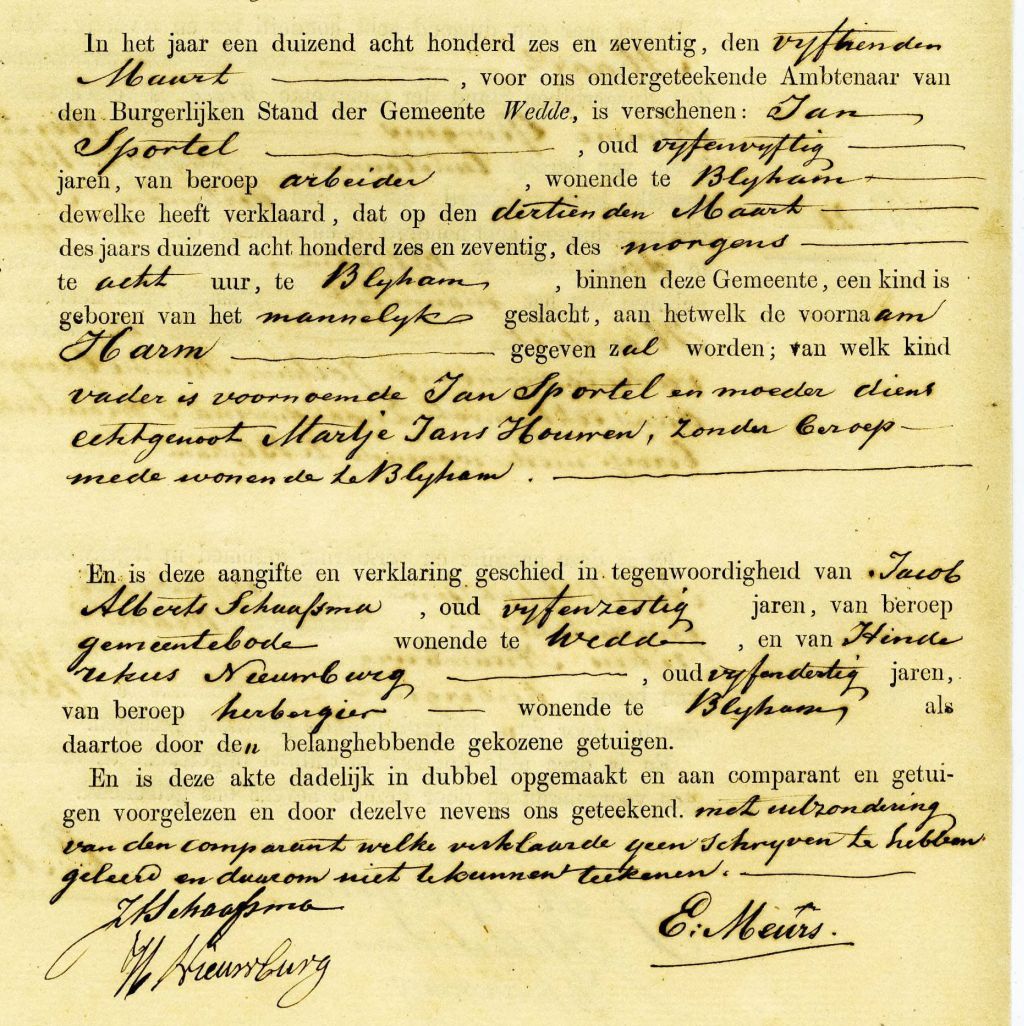 In het jaar een duizend acht honderd zes en zeventig, den vyftienden
Maart , voor ons ondergeteekende Ambtenaar van
den Burgerlijken Stand der Gemeente Wedde, is verschenen: Jan
Sportel , oud vyfenvyftig
jaren, van beroep arbeider , wonende te Blyham
dewelke heeft verklaard, dat op den dertienden Maart
des jaars duizend acht honderd zes en zeventig, des morgens
te acht uur, te Blyham , binnen deze Gemeente, een kind is
geboren van het mannelyk geslacht, aan hetwelk de voornaam
Harm gegeven zal worden; van welk kind
vader is voornoemde Jan Sportel en moeder diens
echtgenoot Martje Jans Houwen, zonder beroep
mede wonende te Blyham.
En is deze aangifte en verklaring geschied in tegenwoordigheid van Jacob
Alberts Schaafsma , oud vyfenzestig jaren, van beroep
gemeentebode wonende te Wedde , en van Hinde
rikus Nieuwburg , oud vyfendertig jaren,
van beroep herbergier wonende te Blyham als
daartoe door den belanghebbende gekozene getuigen.
En is deze akte dadelijk in dubbel opgemaakt en aan comparant en getui-
gen voorgelezen en door dezelve nevens ons geteekend. met uitzondering
van den comparant welke verklaarde geen schryven te hebben
geleerd en daarom niet te kunnen teekenen.
Schaafsma
E: Meurs.
H Nieuwburg